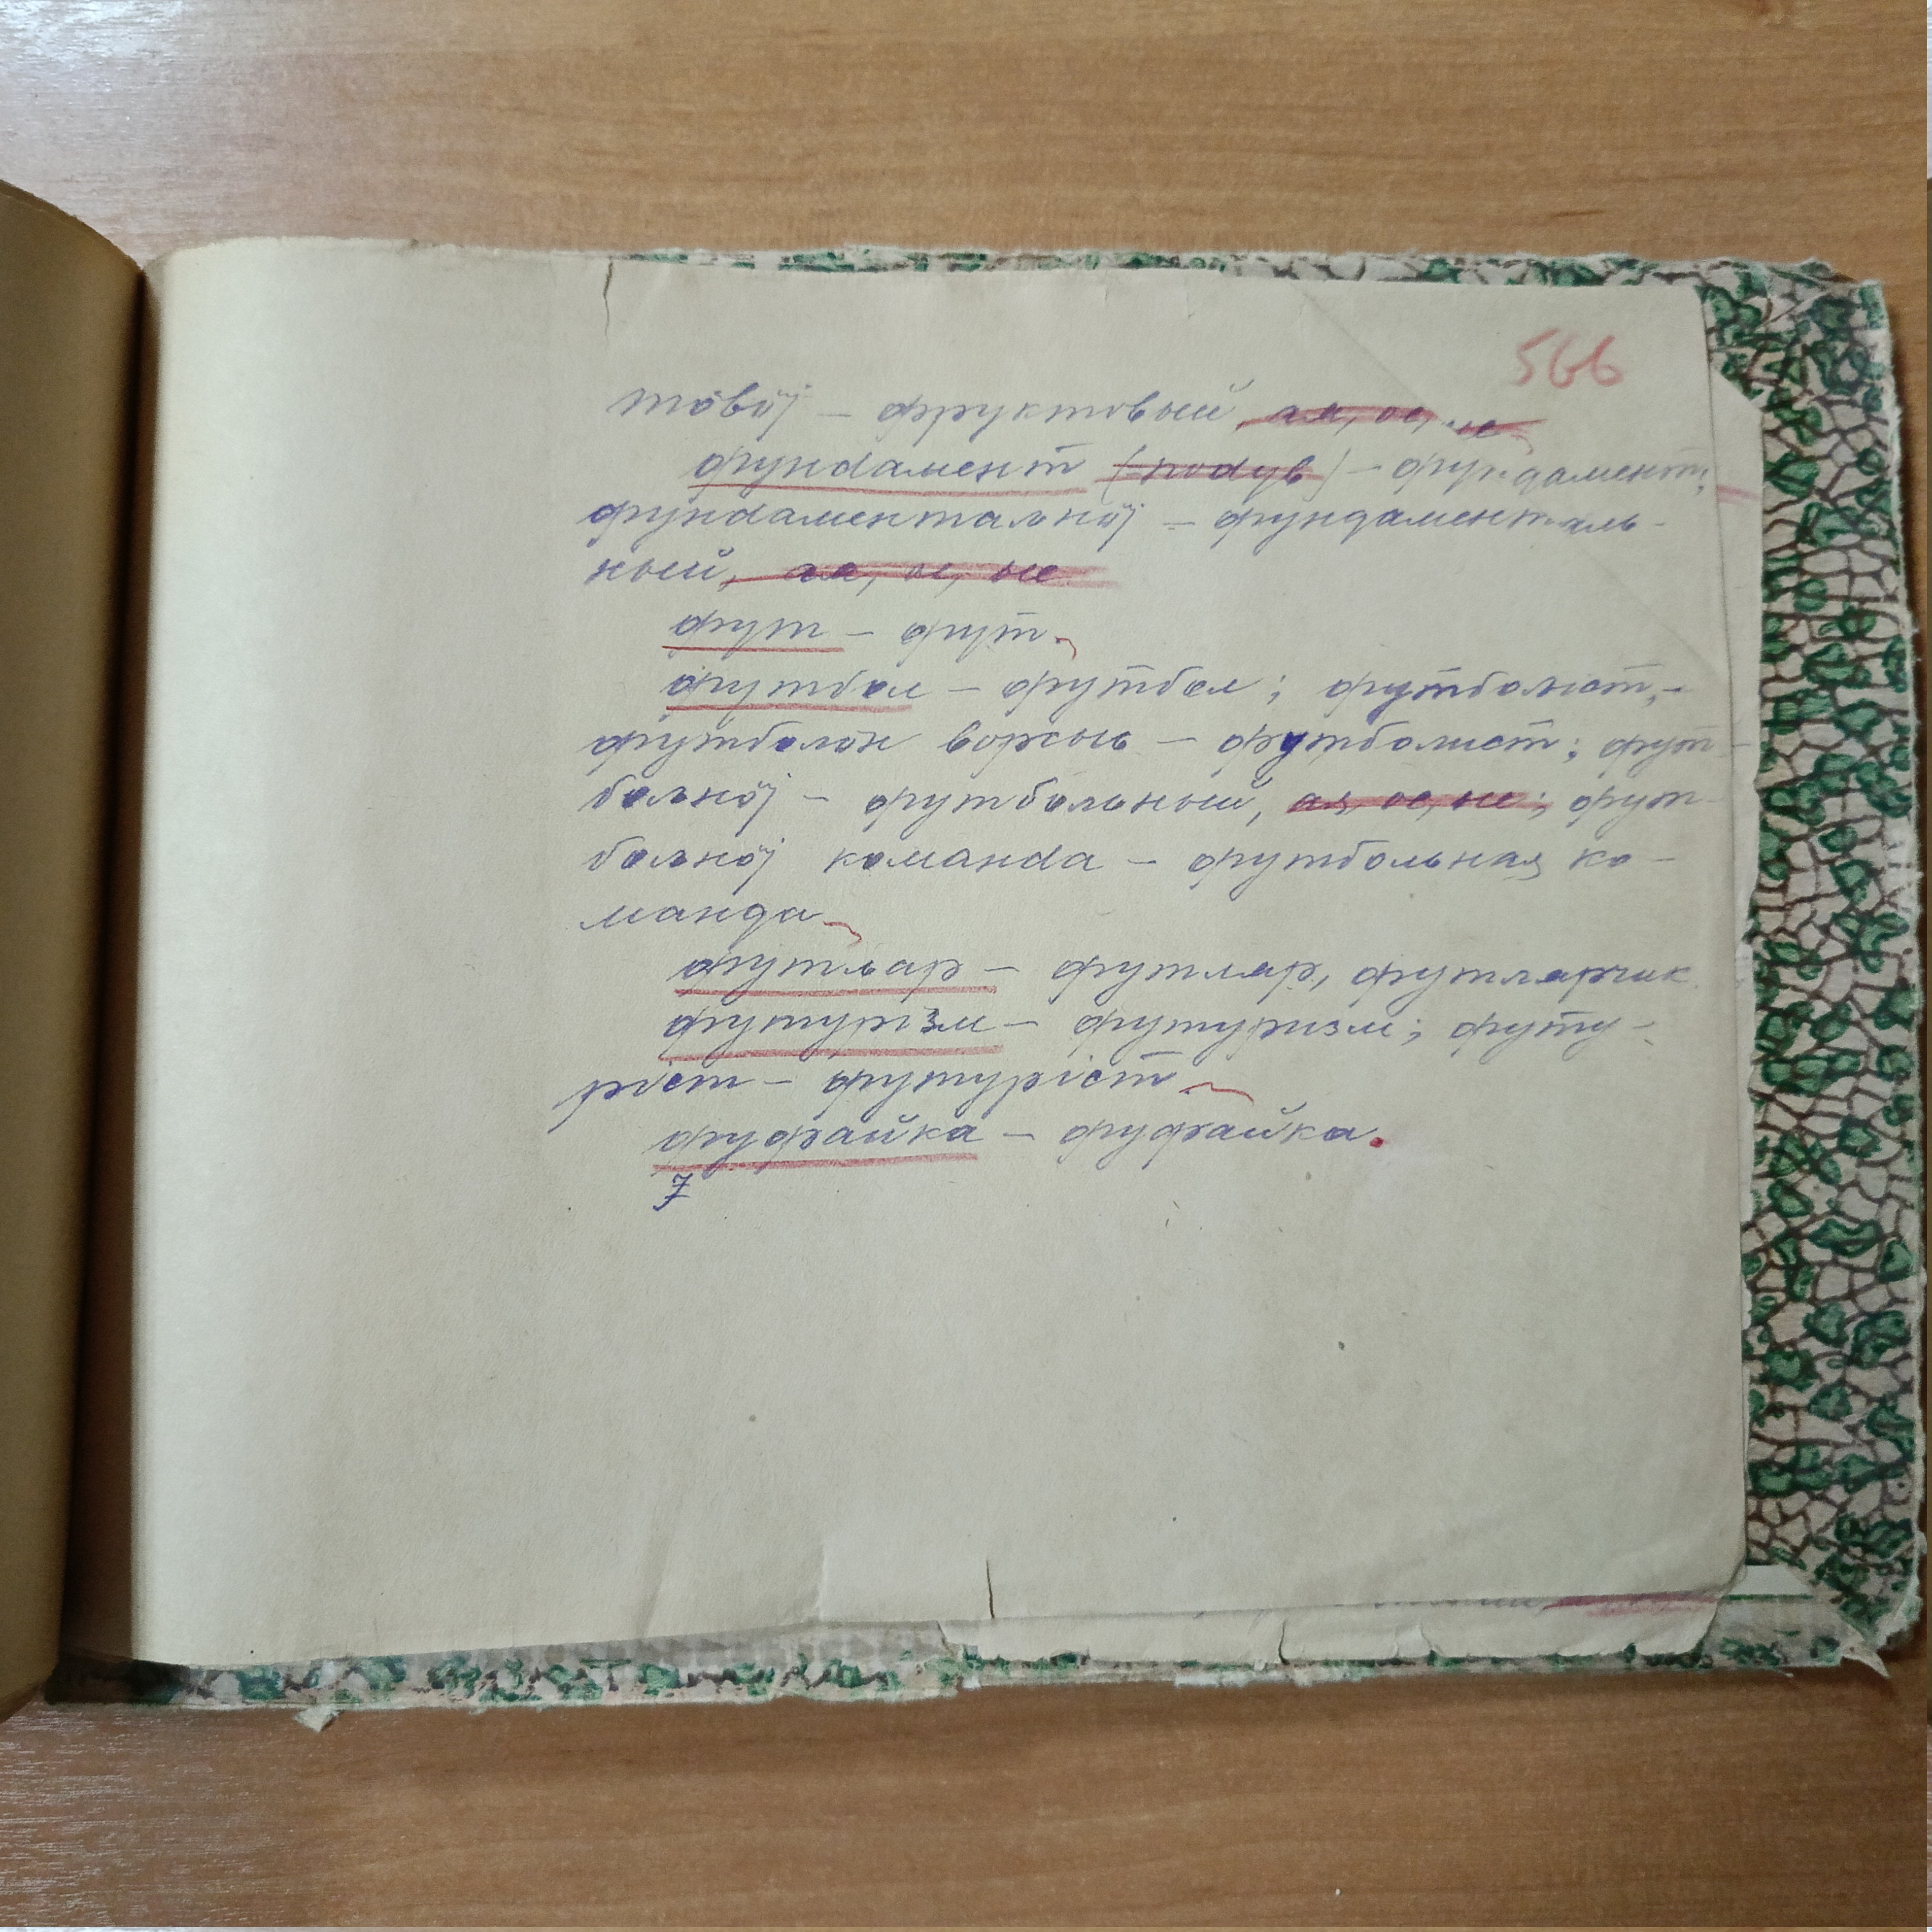 566
тӧвӧј – фруктовый, ая, ое, ые
фундамент (подув) – фундамент;
фундаментальнӧј – фундаменталь-
ный, ая, ое, ые
фут – фут.
футбол – футбол; футболіст, –
футболӧн ворсыь – футболист; фут-
больнӧј – футбольный, ая, ое, ые; фут-
больнӧј команда – футбольная ко-
манда
футльар – футляр, футлярчик
футурізм – футуризм; футу-
ріст – футуріст
фуфайка – фуфайка.
7